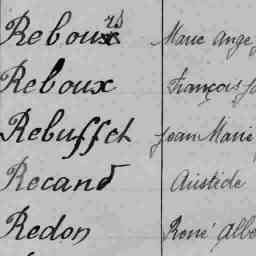 Reboux rd Marie Ange
Reboux François
Rebuffet Jean Marie
Recand Aristide
Redon René Albe